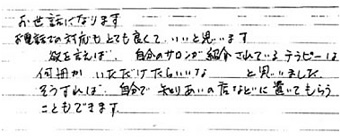 お世話になります
お電話での対応もとても良くて、いいと思います
欲を言えば、自分のサロンが紹介されているテラピーは
何冊かいただけたらいいな と思いました
そうすれば、自分で知りあいの店などに置いてもらう
こともできます